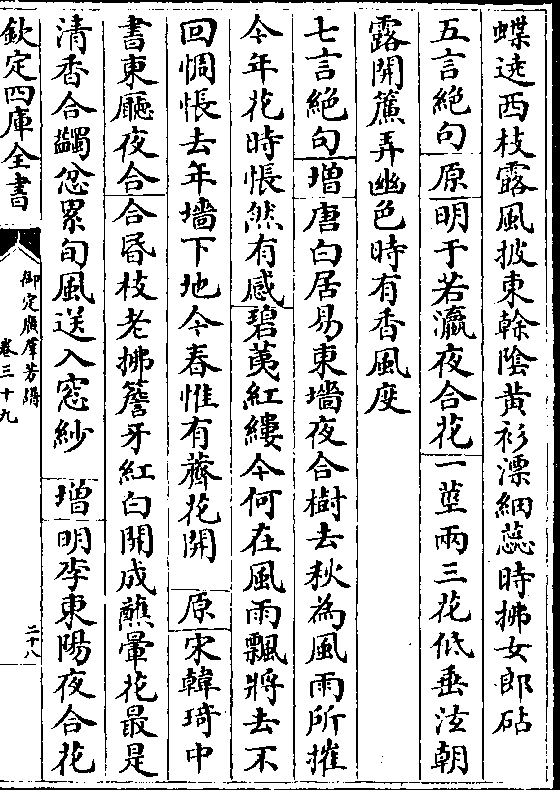 蝶遶西枝露風披東榦陰黃衫漂細蕊時拂女郎砧
五言絶句原明于若瀛夜合花一莖兩三花低垂泫朝
露開簾弄幽色時有香風度
七言絶句增唐白居易東墻夜合樹去秋為風雨所摧
今年花時悵然有感碧荑紅縷今何在風雨飄將去不
回惆悵去年墻下地今春惟有薺花開 原宋韓琦中
書東廳夜合合昏枝老拂簷牙紅白開成蘸暈花最是
清香合蠲忿累旬風送入窓紗 增明李東陽夜合花
欽定四庫全書
御定廣羣芳譜
卷三十九
二十八